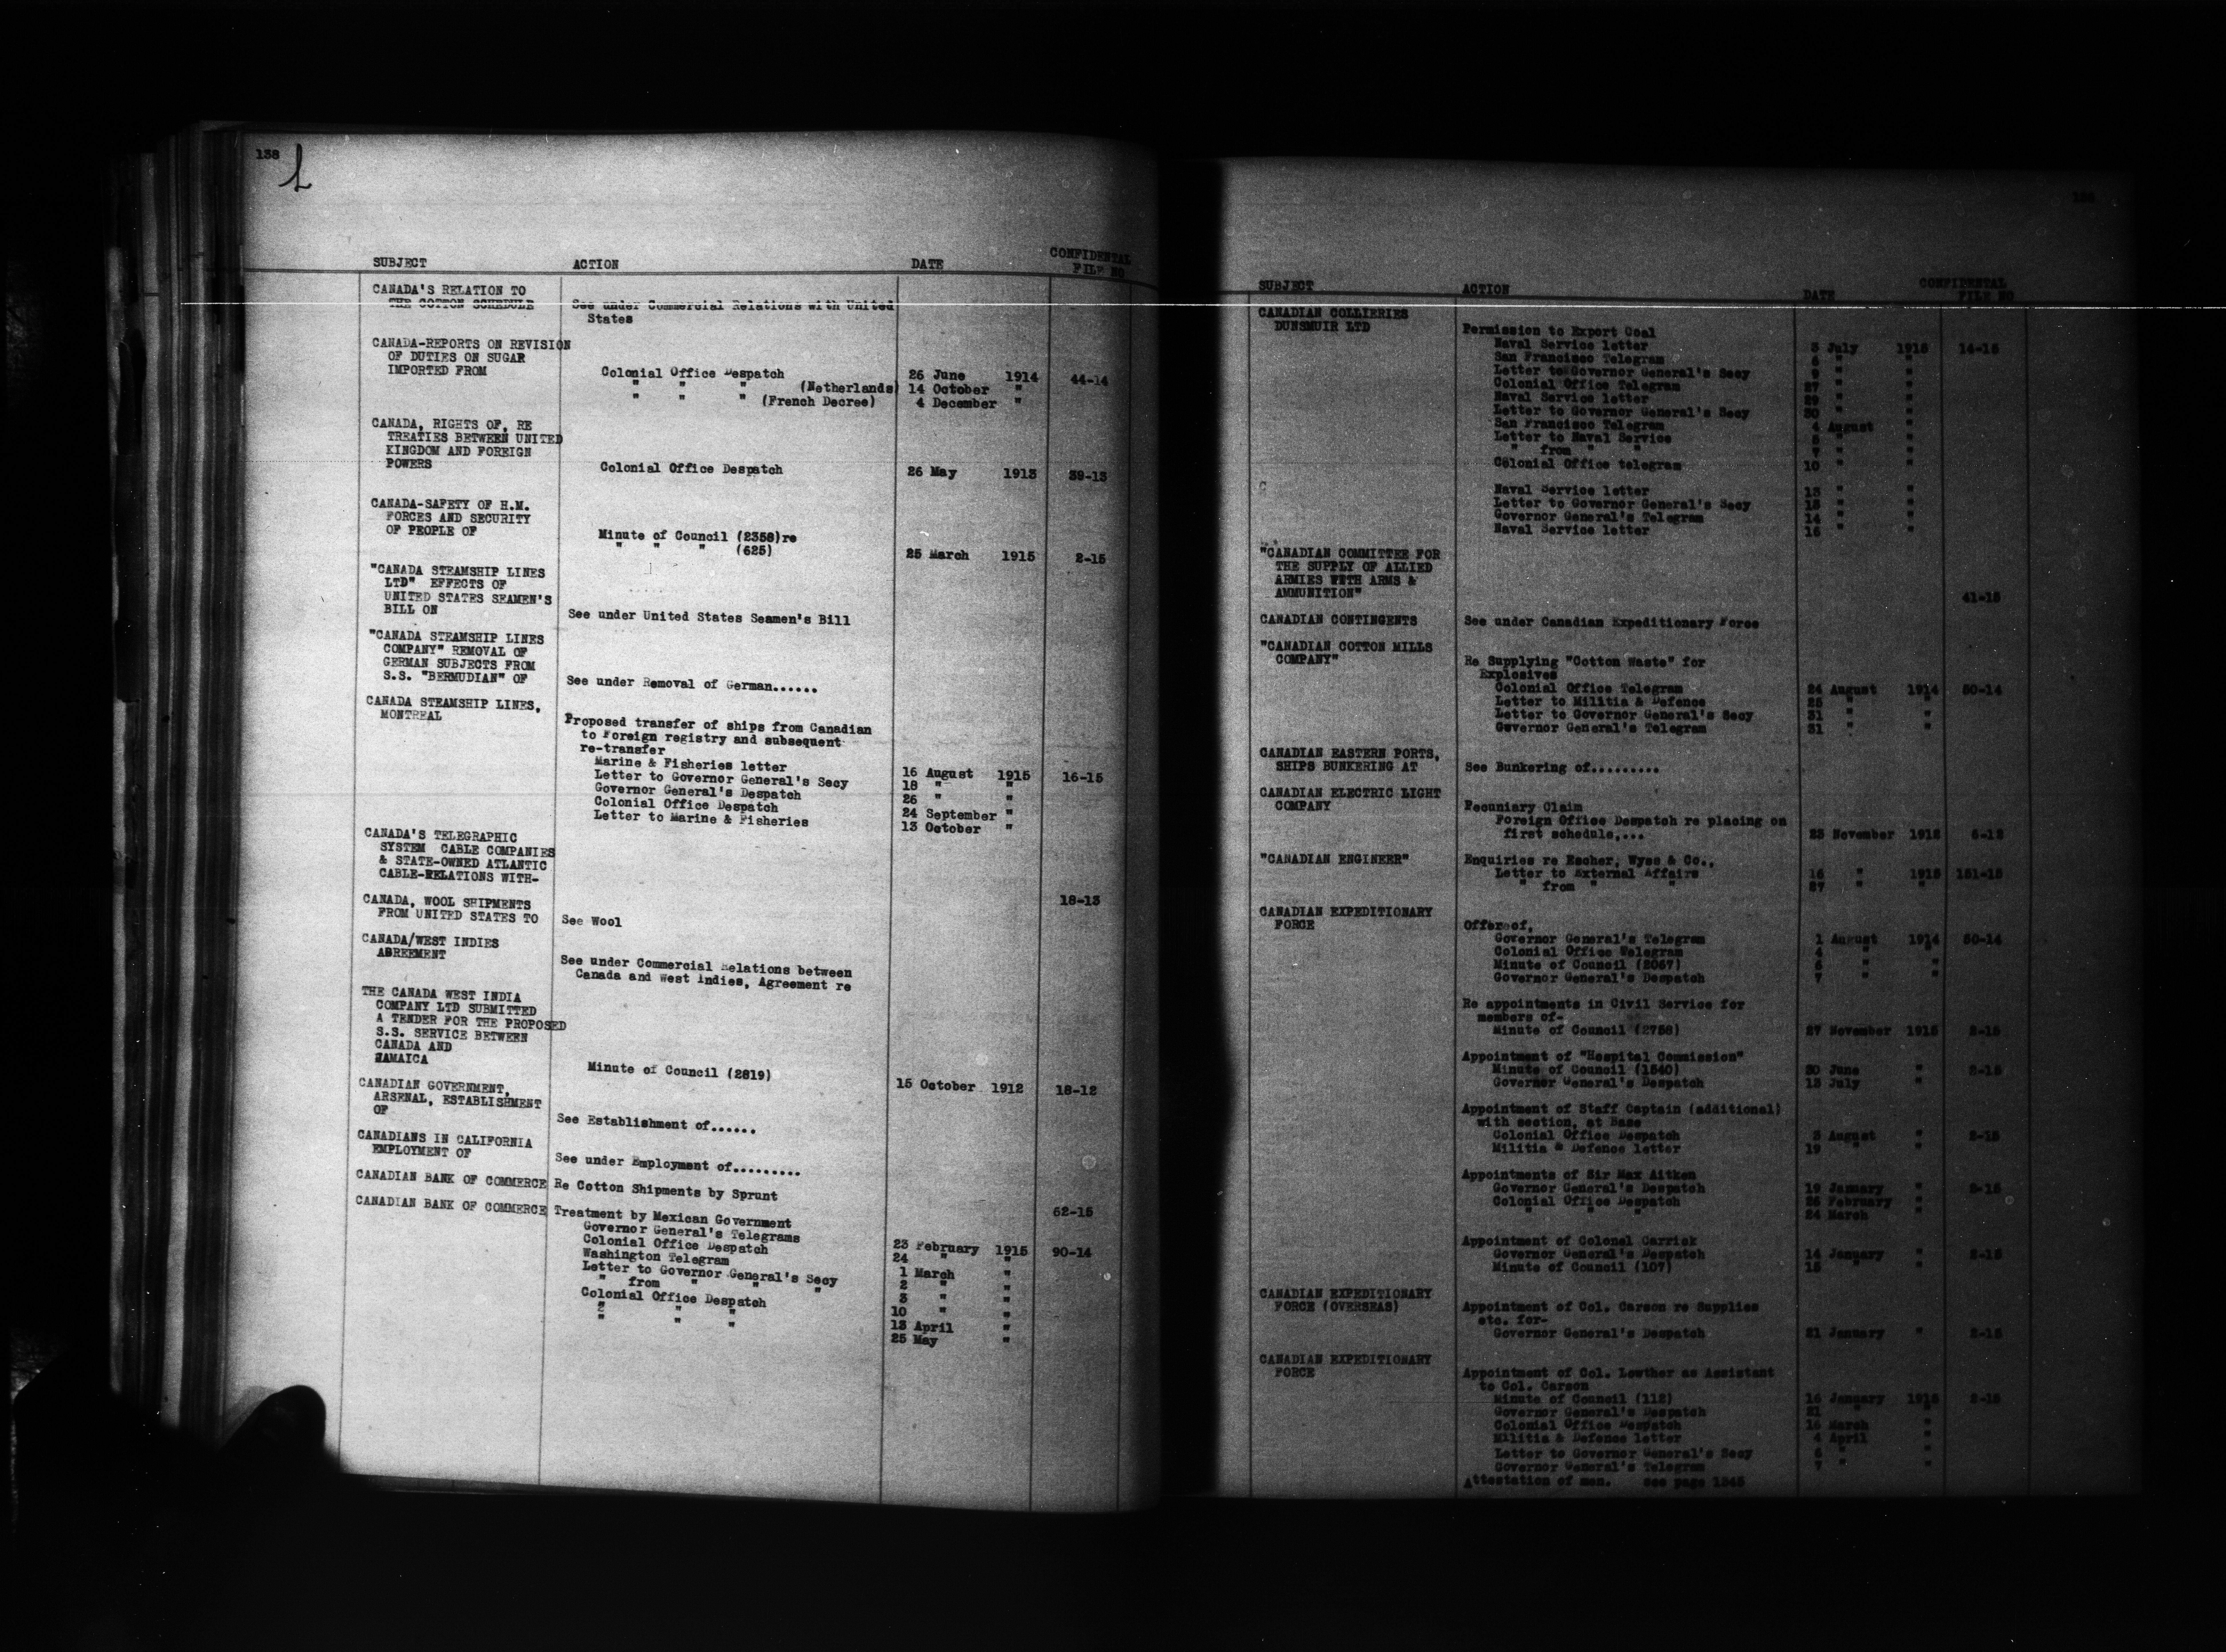 138
SUBJECT ACTION DATE CONFIDENTAL
FILE NO
CANADA'S RELATION TO
THE COTTON SCHEDULE See under Commercial Relations with United
States
CANADA-REPORTS ON REVISION
OF DUTIES ON SUGAR
IMPORTED FROM Colonial Office Despatch 26 June 1914 44-14
" " " (Netherlands) 14 October "
" " " (French Decree) 4 December "
CANADA, RIGHTS OF, RE
TREATIES BETWEEN UNITED
KINGDOM AND FOREIGN
POWERS Colonial Office Despatch 26 May 1913 39-13
CANADA-SAFETY OF H.M.
FORCES AND SECURITY
OF PEOPLE OF Minute of Council (2358)re
" " " (625) 25 March 1915 2-15
"CANADA STEAMSHIP LINES
LTD" EFFECTS OF
UNITED STATES SEAMEN'S
BILL ON See under United States Seamen's Bill
"CANADA STEAMSHIP LINES
COMPANY" REMOVAL OF
GERMAN SUBJECTS FROM
S.S. "BERMUDIAN" OF See under Removal of German......
CANADA STEAMSHIP LINES,
MONTREAL Proposed transfer of ships from Canadian
to Foreign registry and subsequent
re-transfer
Marine & Fisheries letter 16 August 1915 16-15
Letter to Governor General's Secy 18 " "
Governor General's Despatch 26 " "
Colonial Office Despatch 24 September "
Letter to Marine & Fisheries 13 October "
CANADA'S TELEGRAPHIC
SYSTEM CABLE COMPANIES
& STATE-OWNED ATLANTIC
CABLE-RELATIONS WITH- 18-13
CANADA, WOOL SHIPMENTS
FROM UNITED STATES TO See Wool
CANADA/WEST INDIES
ABREEMENT See under Commercial Relations between
Canada and West Indies, Agreement re
THE CANADA WEST INDIA
COMPANY LTD SUBMITTED
A TENDER FOR THE PROPOSED
S.S. SERVICE BETWEEN
CANADA AND
JAMAICA Minute of Council (2819) 15 October 1912 18-12
CANADIAN GOVERNMENT,
ARSENAL, ESTABLISHMENT
OF See Establishment of......
CANADIANS IN CALIFORNIA
EMPLOYMENT OF See under Employment of.........
CANADIAN BANK OF COMMERCE Re Cotton Shipments by Sprunt 62-15
CANADIAN BANK OF COMMERCE Treatment by Mexican Government
Governor General's Telegrams 23 February 1915 90-14
Colonial Office Despatch 24 " "
Washington Telegram 1 March "
Letter to Governor General's Secy 2 " "
" from " " " 3 " "
Colonial Office Despatch 10 " "
" " " 13 April "
" " " 25 May "
SUBJECT ACTION DATE CONFIDENTAL
FILE NO
CANADIAN COLLIERIES
DUNSMUIR LTD Permission to Export Coal
Naval Service letter 3 July 1915 14-15
San Francisco Telegram 6 " "
Letter to Governor General's Secy 9 " "
Colonial Office Telegram 27 " "
Naval Service letter 29 " "
Letter to Governor General's Secy 30 " "
San Francisco Telegram 4 August "
Letter to Naval Service 5 " "
" from " " 7 " "
Colonial Office telegram 10 " "
Naval Service letter 13 " "
Letter to Governor General's Secy 13 " "
Governor General's Telegram 14 " "
Naval Service letter 16 " "
"CANADIAN COMMITTEE FOR
THE SUPPLY OF ALLIED
ARMIES WITH ARMS &
AMMUNITION" 41-15
CANADIAN CONTINGENTS See under Canadian Expeditionary Force
"CANADIAN COTTON MILLS
COMPANY" Re Supplying "Cotton Waste" for
Explosives
Colonial Office Telegram 24 August 1914 50-14
Letter to Militia & Defence 25 " "
Letter to Governor General's Secy 31 " "
Governor General's Telegram 31 " "
CANADIAN EASTERN PORTS,
SHIPS BUNKERING AT See Bunkering of.........
CANADIAN ELECTRIC LIGHT
COMPANY Pecuniary Claim
Foreign Office Despatch re placing on
first schedule,... 23 November 1912 6-12
"CANADIAN ENGINEER" Enquiries re Escher, Wyss & Co.,
Letter to External Affairs 16 " 1915 151-15
" from " " 27 " "
CANADIAN EXPEDITIONARY
FORCE Offer of,
Governor General's Telegram 1 August 1914 50-14
Colonial Office Telegram 4 " "
Minute of Council (2067) 6 " "
Governor General's Despatch 7 " "
Re appointments in Civil Service for
members of-
Minute of Council (2758) 27 November 1915 2-15
Appointment of "Hospital Commission"
Minute of Council (1540) 30 June " 2-15
Governor General's Despatch 13 July "
Appointment of Staff Captain (additional)
with section, at Base
Colonial Office Despatch 3 August " 2-15
Militia & Defence letter 19 " "
Appointments of Sir Max Aitken
Governor General's Despatch 19 January " 2-15
Colonial Office Despatch 26 February "
" " " 24 March "
Appointment of Colonel Carrick
Governor General's Despatch 14 January " 2-15
Minute of Council (107) 15 " "
CANADIAN EXPEDITIONARY
FORCE (OVERSEAS) Appointment of Col. Carson re Supplies
etc. for-
Governor General's Despatch 21 January " 2-15
CANADIAN EXPEDITIONARY
FORCE Appointment of Col. Lowther as Assistant
to Col. Carson
Minute of Council (112) 16 January 1915 2-15
Governor General's Despatch 21 " "
Colonial Office Despatch 16 March "
Militia & Defence letter 4 April "
Letter to Governor General's Secy 6 " "
Governor General's Telegram 7 " "
Attestation of men. see page 1345